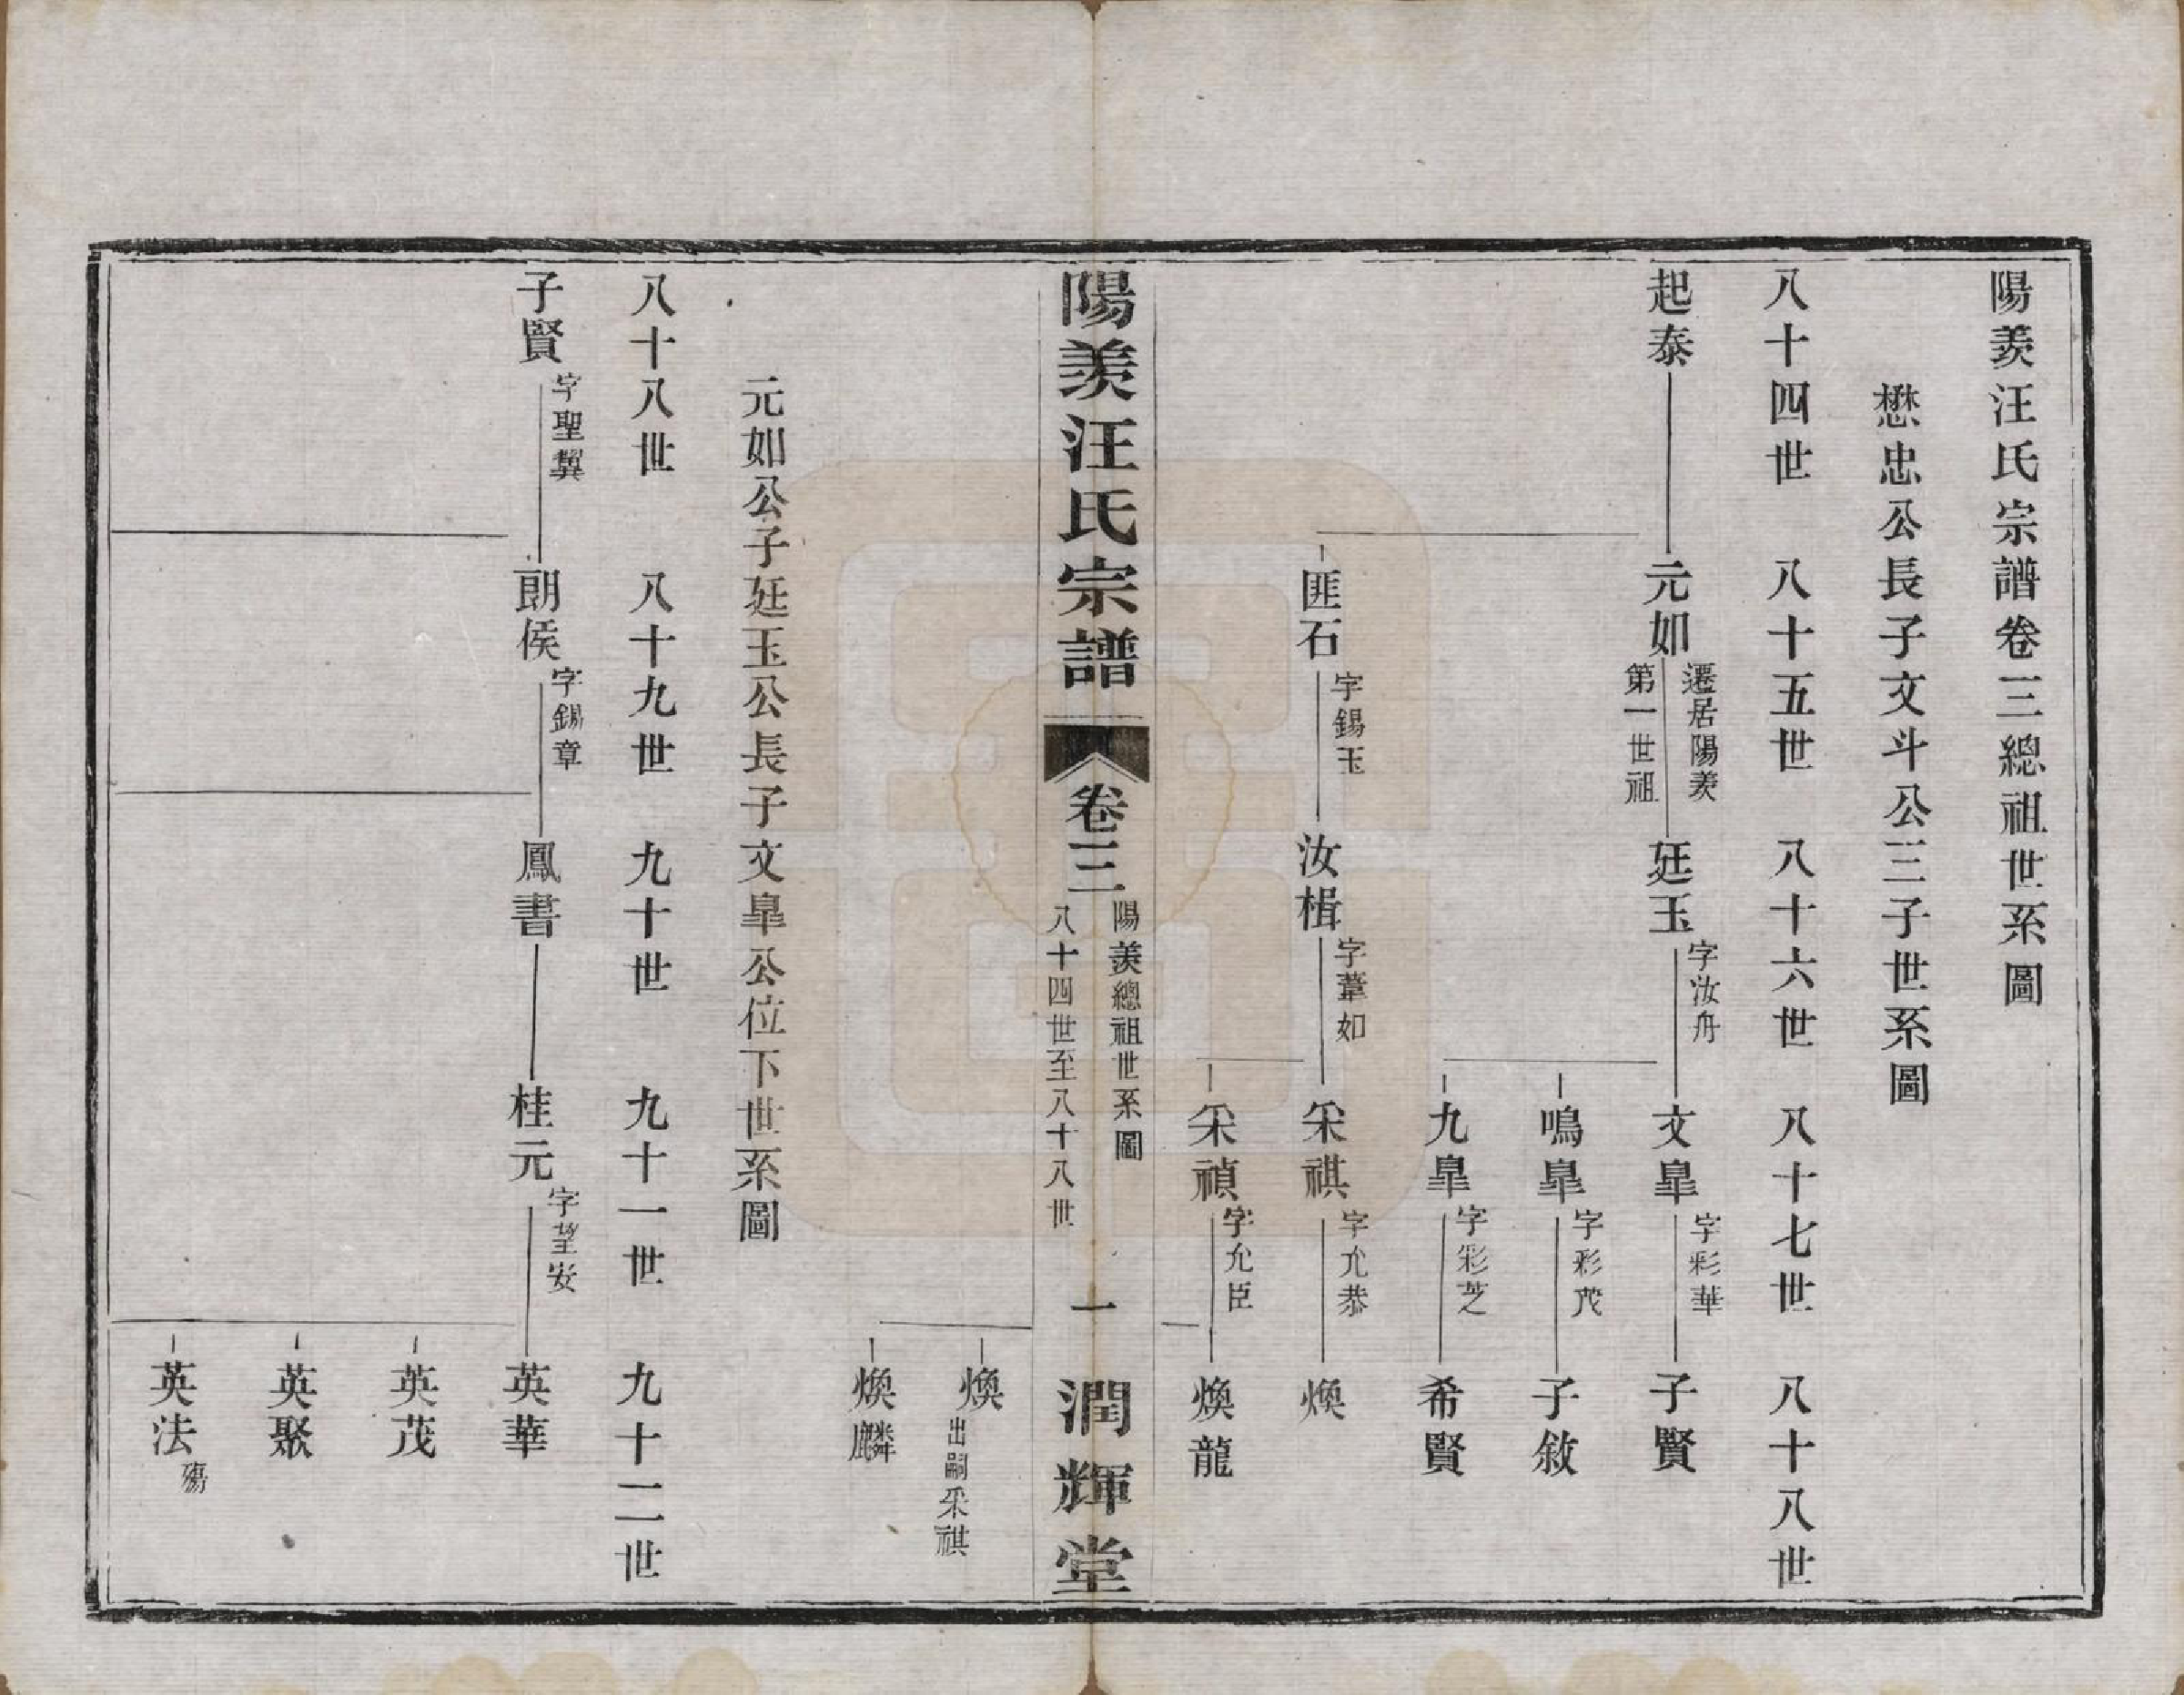 陽羨汪氏宗譜卷三總祖世系圖
懋忠公長子文斗公三子世系圖
八十四世　八十五世　八十六世　八十七世　八十八世
起泰　元如　遷居陽羨第一世祖　廷玉　字汝舟　文臯　字彩華　子賢
鳴臯　字彩茂　子敘
九臯　字彩芝　希賢
匪石　字錫玉　汝楫　字葦如　采祺　字允恭　煥
采禎　字允臣　煥龍
陽羨汪氏宗譜　卷三　陽羨總祖世系圖　八十四世至八十八世　一　潤輝堂
煥　出嗣采祺
煥麟
元如公子廷玉公長子文臯公位下世系圖
八十八世　八十九世　九十世　九十一世　九十二世
子賢　字聖翼　朗侯　字錫章　鳳書　桂元　字望安　英華
英茂
英聚
英法　殤